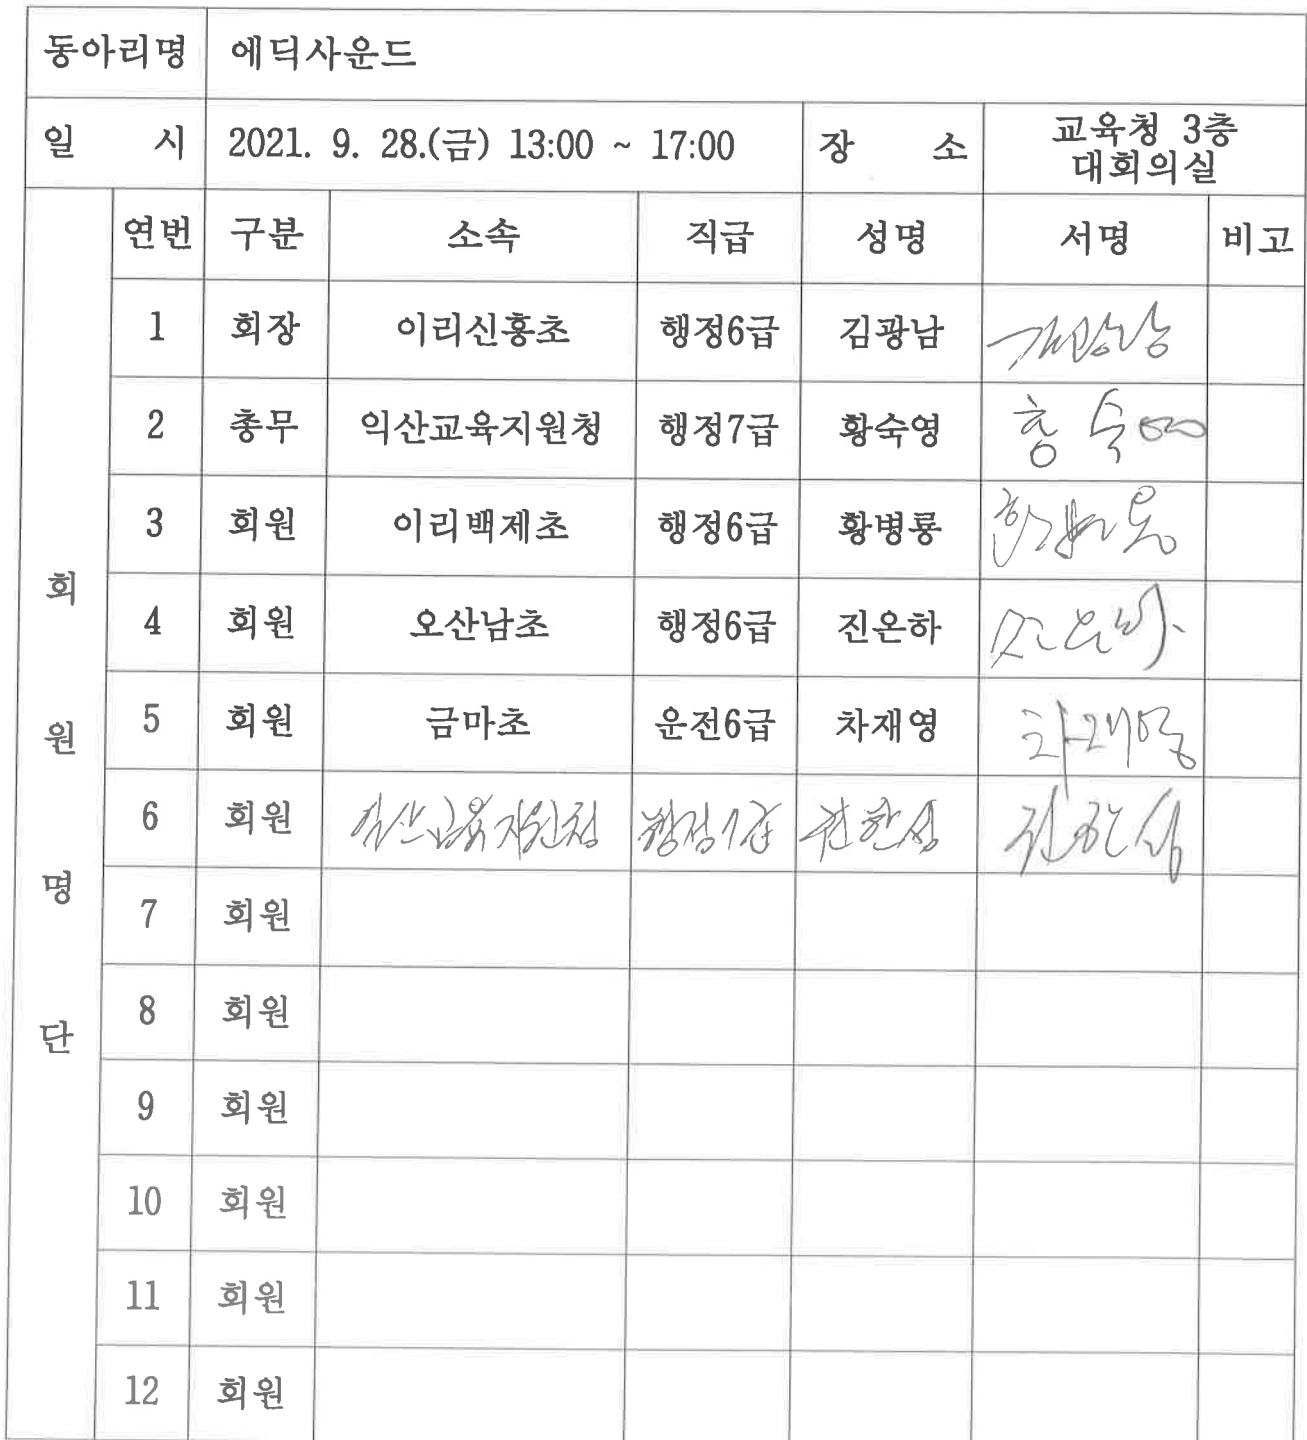 동아리명 에딕사운드
일 시 2021. 9. 28.(금) 13:00 ~ 17:00 장 소 교육청 3층
대회의실
회원명단
연번 구분 소속 직급 성명 서명 비고
1 회장 이리신흥초 행정6급 김광남 김광남
2 총무 익산교육지원청 행정7급 황숙영 황숙영
3 회원 이리백제초 행정6급 황병룡 황병룡
4 회원 오산남초 행정6급 진은하 진은하
5 회원 금마초 운전6급 차재영 차재영
6 회원 익산교육지원청
7 회원
8 회원
9 회원
10 회원
11 회원
12 회원